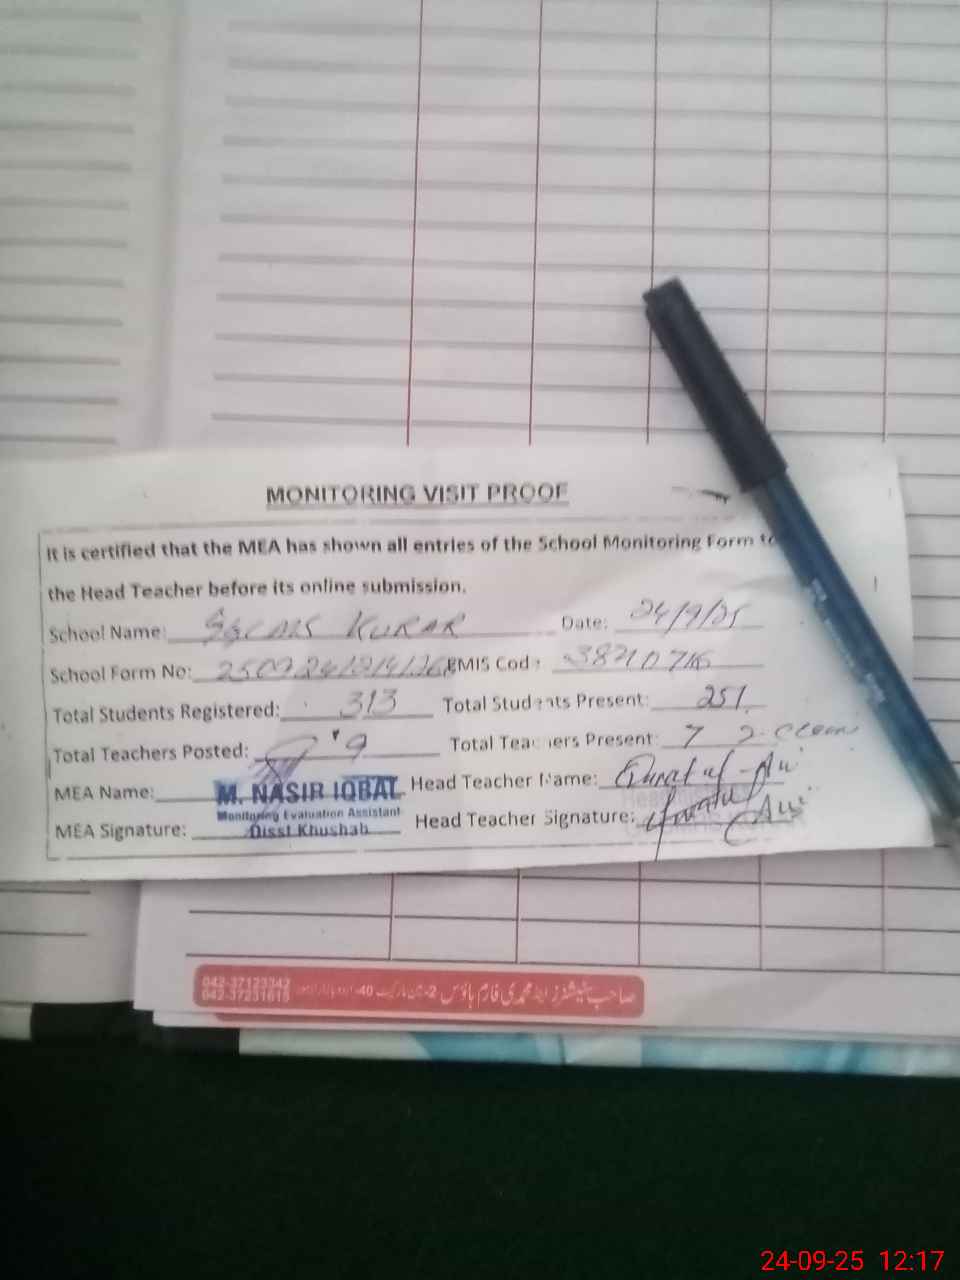 MONITORING VISIT PROOF
It is certified that the MEA has shown all entries of the School Monitoring Form to
the Head Teacher before its online submission.
School Name: KURAR Date: 24/9/25
School Form No: EMIS Code:
Total Students Registered: 313 Total Students Present: 251
Total Teachers Posted: 9 Total Teachers Present: 7
MEA Name: M. NASIR IQBAL Head Teacher Name: Qurat ul-Ain
Monitoring Evaluation Assistant
MEA Signature: Disst Khushab Head Teacher Signature:
042-37123342
042-37231615
صاحب سٹیشنرز اینڈ محمدی فارم ہاؤس
24-09-25 12:17